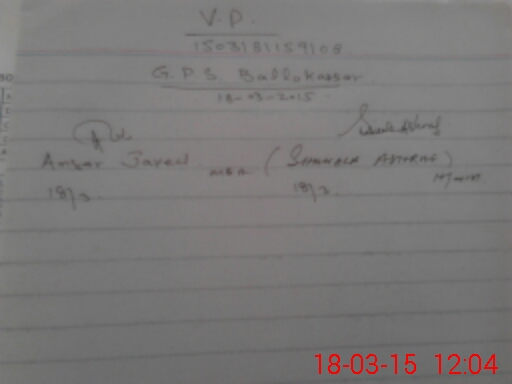 V.P.
1503181159108
G.P.S Ballokassar
18-03-2015
Ansar Javed MEA (SHAHEELA ASHRAF)
18/3 18/3
18-03-15 12:04